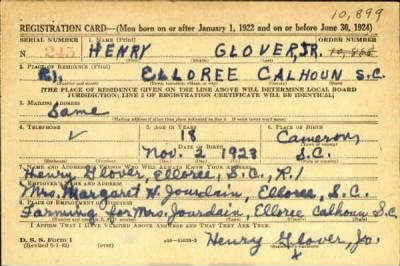 10,899
REGISTRATION CARD—(Men born on or after January 1, 1922 and on or before June 30, 1924)
SERIAL NUMBER 1. NAME (Print) ORDER NUMBER
N 245 HENRY GLOVER, JR.
2. PLACE OF RESIDENCE (Print)
R1, ELLOREE CALHOUN S.C.
[THE PLACE OF RESIDENCE GIVEN ON THE LINE ABOVE WILL DETERMINE LOCAL BOARD
JURISDICTION; LINE 2 OF REGISTRATION CERTIFICATE WILL BE IDENTICAL]
3. MAILING ADDRESS
Same
4. TELEPHONE 5. AGE IN YEARS 6. PLACE OF BIRTH
18 Cameron,
Nov. 2 1923 S.C.
7. NAME AND ADDRESS OF PERSON WHO WILL ALWAYS KNOW YOUR ADDRESS
Henry Glover, Elloree, S.C., R.1
8. EMPLOYER'S NAME AND ADDRESS
Mrs. Margaret H. Jourdain, Elloree, S.C.
9. PLACE OF EMPLOYMENT OR BUSINESS
Farming for Mrs. Jourdain, Elloree Calhoun S.C.
I AFFIRM THAT I HAVE VERIFIED ABOVE ANSWERS AND THAT THEY ARE TRUE.
D. S. S. Form 1
Henry Glover, Jr.